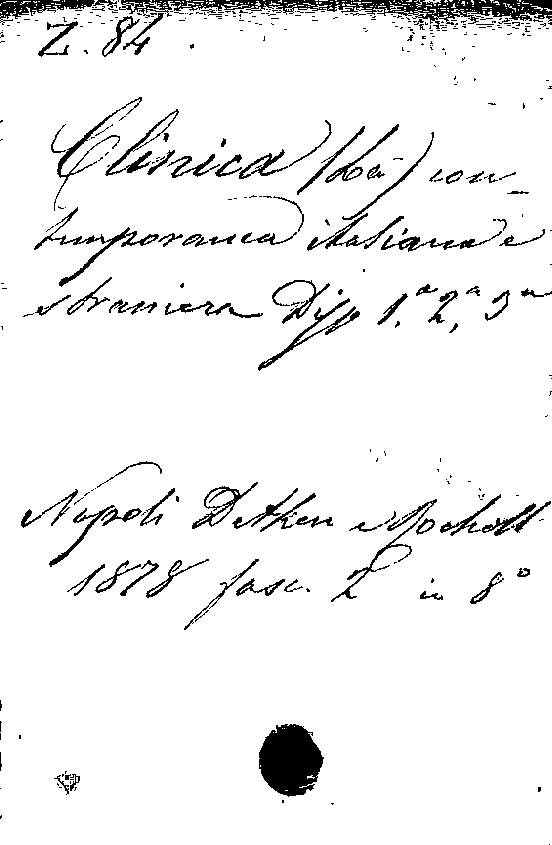 Z. 84.
Clinica (La) con-
temporanea italiana e
straniera Disp 1.a 2.a 3a
Napoli Detken e Rocholl
1878 fasc. 2 in 8°